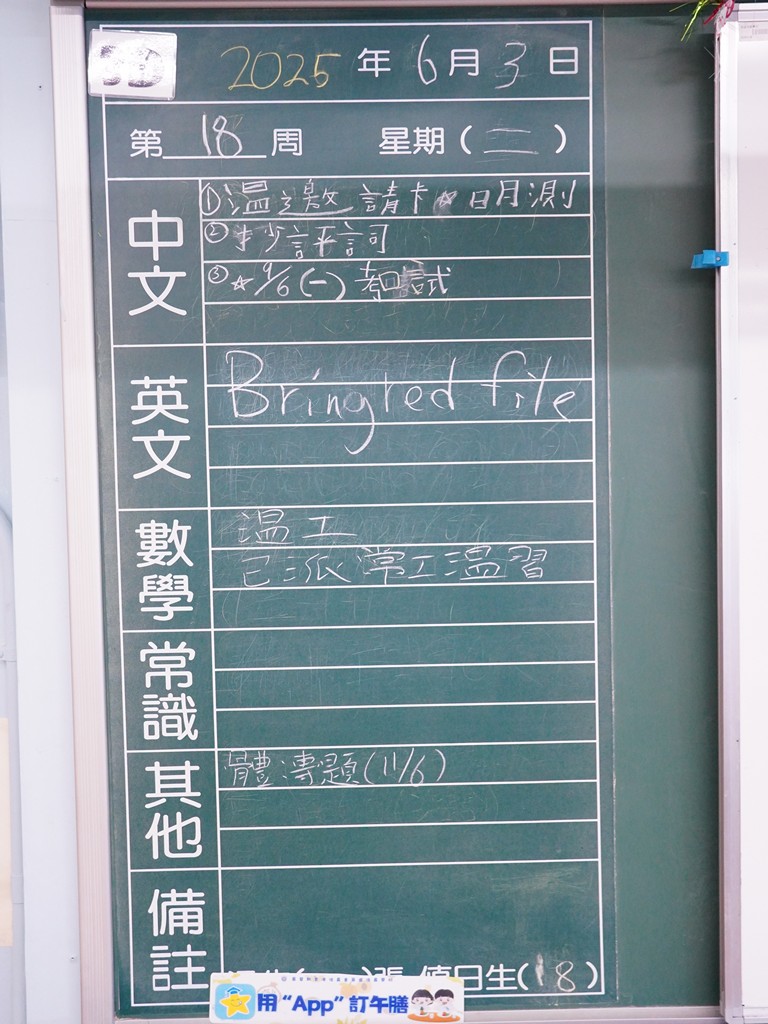 2025年6月3日
第18周 星期(二)
中文
①温邀請卡 明測
②抄評詞
③☆9/6(一)考試
英文
Bring red file
數學
溫工
已派常工溫習
常識
其他
體專題(11/6)
備註
張 值日生(18)
用“App”訂午膳